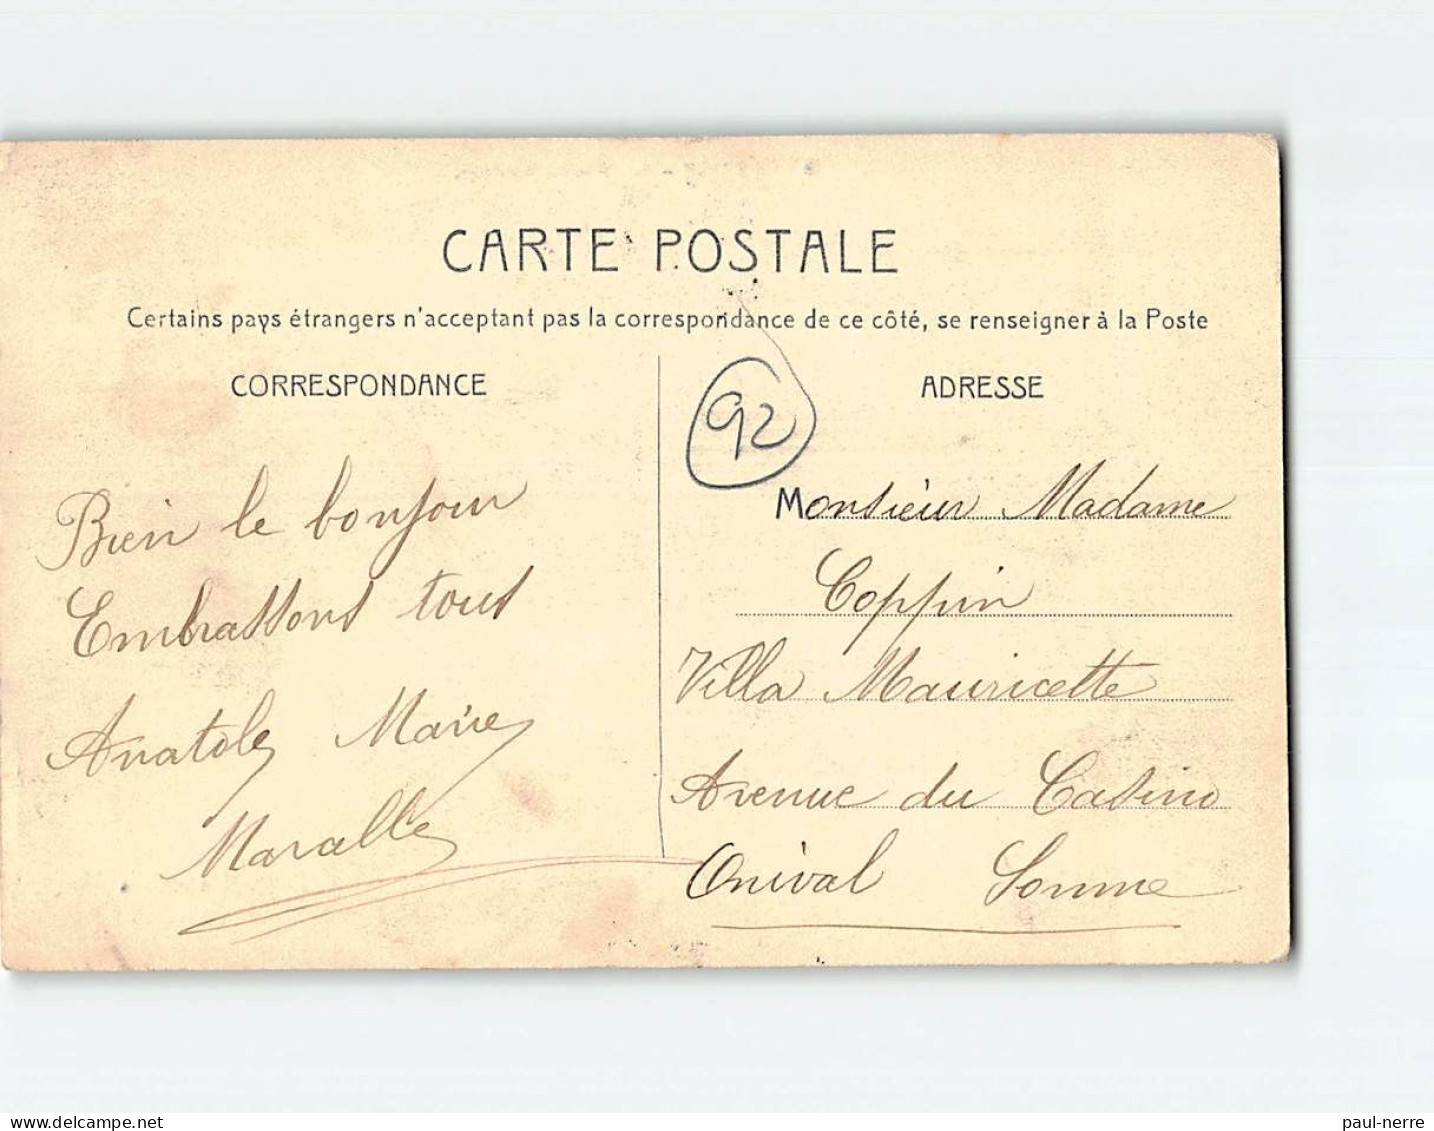 CARTE POSTALE
Certains pays étrangers n'acceptent pas la correspondance de ce côté, se renseigner à la Poste
CORRESPONDANCE
Bien le bonjour
Embrassons tous
Anatole Marie
Maralle
92
ADRESSE
Monsieur Madame
Coppin
Villa Mauricette
Avenue du Casino
Onival Somme
paul-nerre